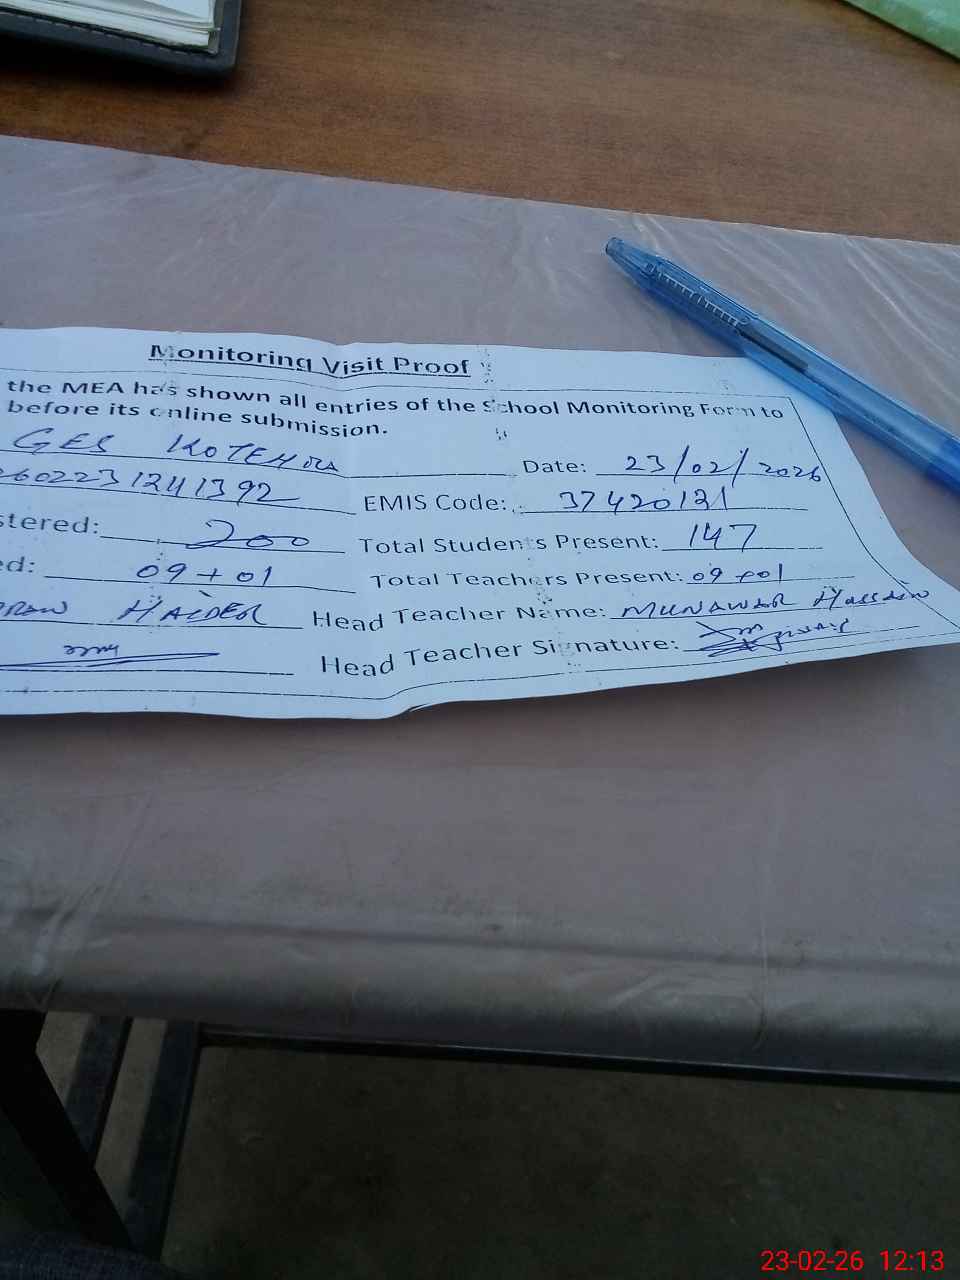 Monitoring Visit Proof
the MEA has shown all entries of the School Monitoring Form to
before its online submission.
GES KOTEHRA Date: 23/02/2026
2602231241392 EMIS Code: 37420131
stered: 200 Total Students Present: 147
ed: 09+01 Total Teachers Present: 09+01
HAIDER Head Teacher Name: MUNAWAR Hassain
Head Teacher Signature:
23-02-26 12:13